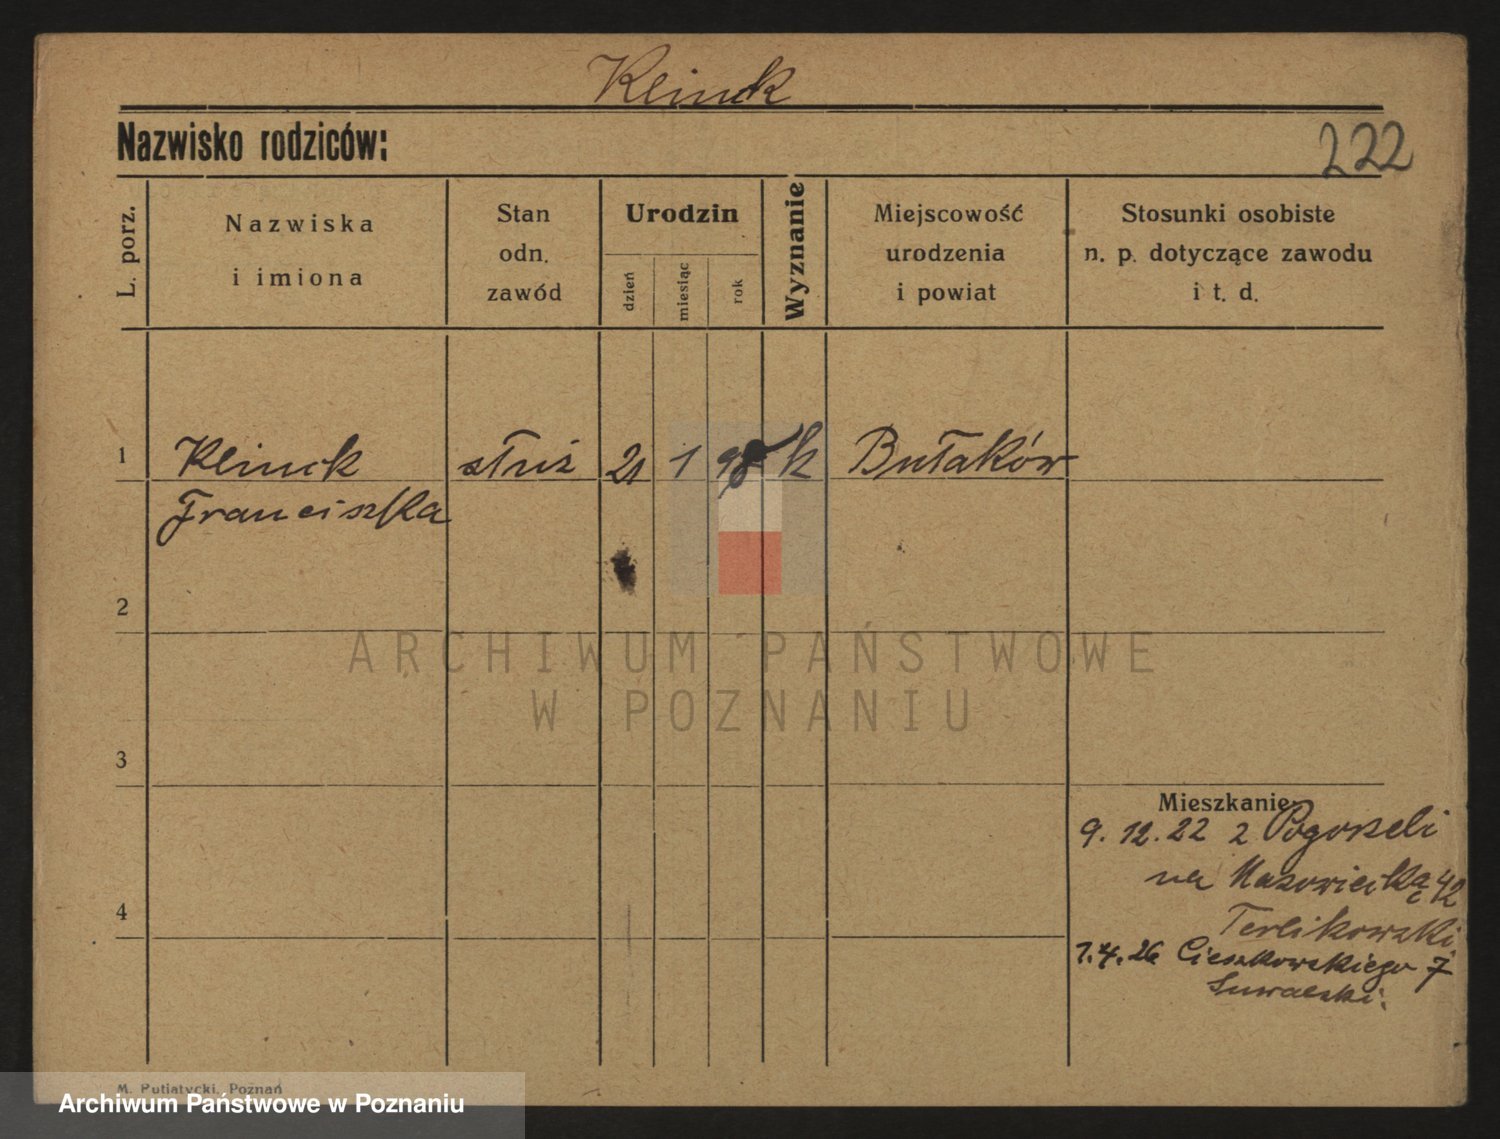 Klimek
Nazwisko rodziców:
222
L. porz.
Nazwiska
i imiona
Stan
odn.
zawód
Urodzin
dzień
miesiąc
rok
Wyznanie
Miejscowość
urodzenia
i powiat
Stosunki osobiste
n. p. dotyczące zawodu
i t. d.
1
Klimek służ 21 1 98 k Bułaków
Franciszka
2
ARCHIWUM PAŃSTWOWE
W POZNANIU
3
Mieszkanie:
9. 12. 22 z Pogorzeli
na Mazowiecką 42
Terlikowski
4
1.4.26 Cieszkowskiego 7
Suwalski
M. Putiatycki, Poznań
Archiwum Państwowe w Poznaniu